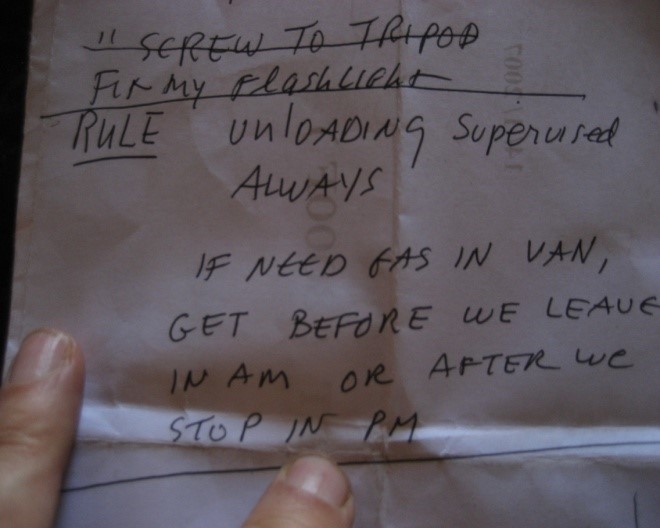 " SCREW TO TRIPOD
FIX MY FLASHLIGHT
RULE UNLOADING Supervised
ALWAYS
IF NEED GAS IN VAN,
GET BEFORE WE LEAVE
IN AM OR AFTER WE
STOP IN PM